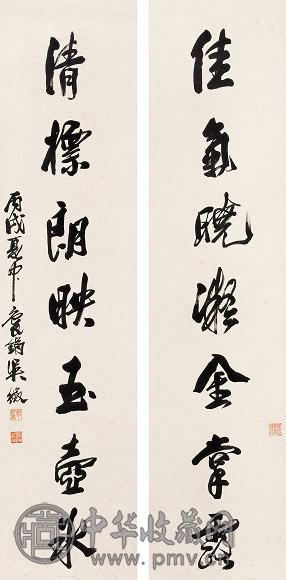 佳氣曉凝金掌露
清標朗映玉壺冰
丙戌夏中袌鋗吳徵
中华收藏网
www.pmv.cn